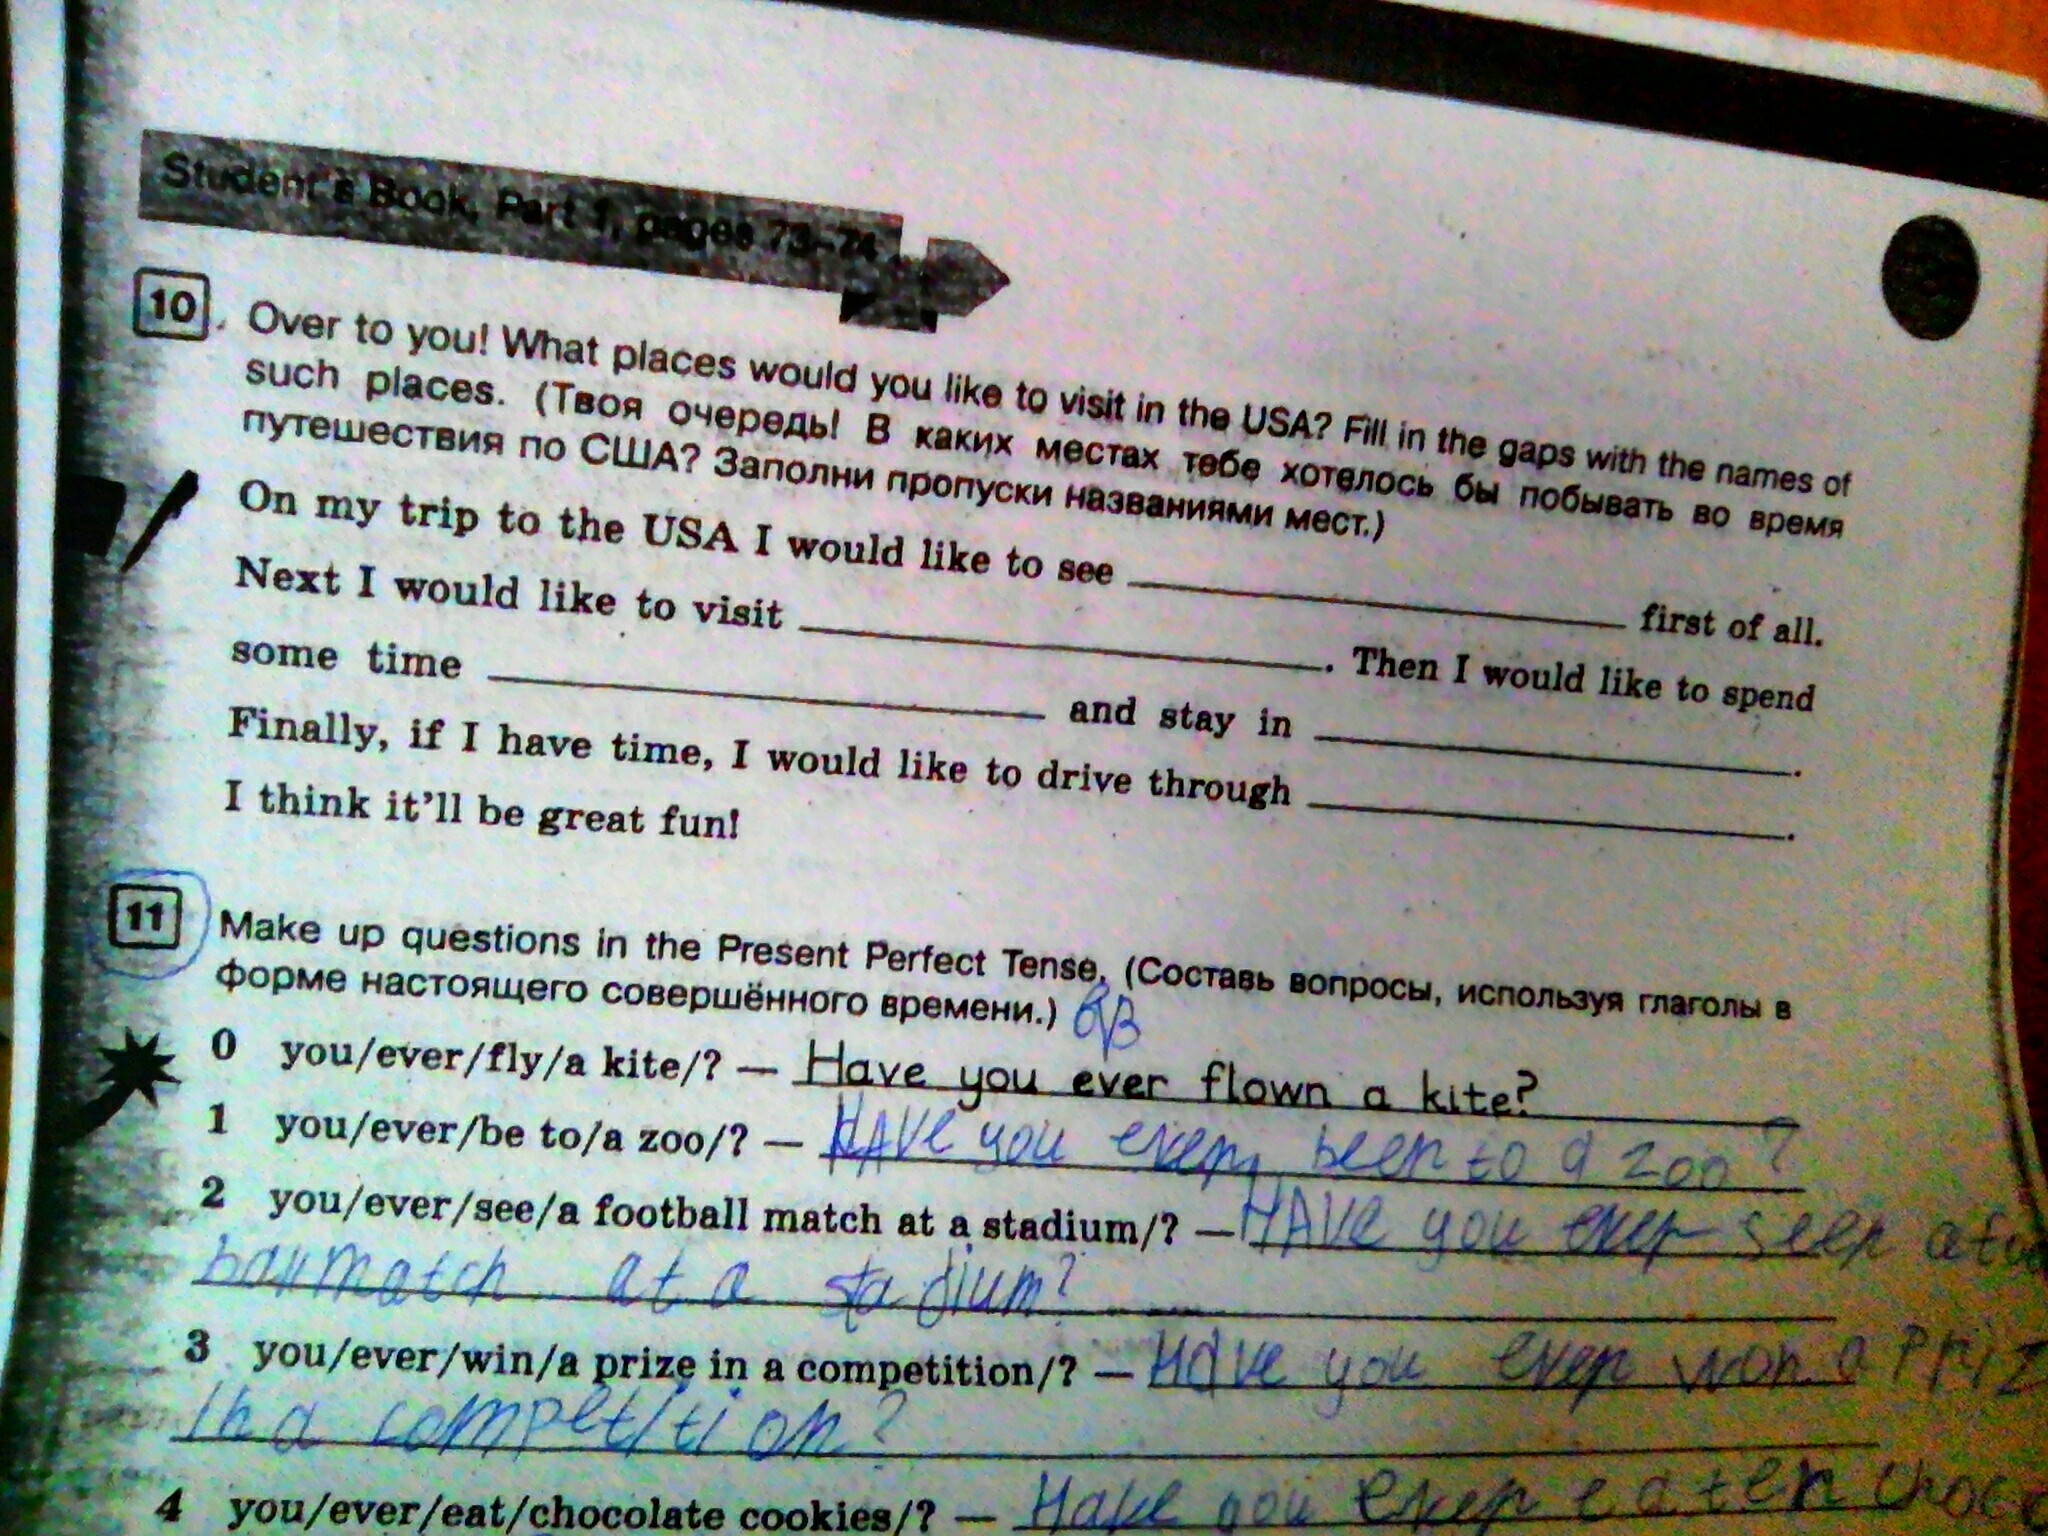 Student's Book, Part 1, pages 73–74
10. Over to you! What places would you like to visit in the USA? Fill in the gaps with the names of
such places. (Твоя очередь! В каких местах тебе хотелось бы побывать во время
путешествия по США? Заполни пропуски названиями мест.)
On my trip to the USA I would like to see ____ first of all.
Next I would like to visit ____. Then I would like to spend
some time ____ and stay in ____.
Finally, if I have time, I would like to drive through ____.
I think it'll be great fun!
11 Make up questions in the Present Perfect Tense. (Составь вопросы, используя глаголы в
форме настоящего совершённого времени.)
0 you/ever/fly/a kite/? — Have you ever flown a kite?
1 you/ever/be to/a zoo/? — HAVe you ever been to a zoo?
2 you/ever/see/a football match at a stadium/? — HAVe you ever seen a
match at a stadium?
3 you/ever/win/a prize in a competition/? — Have you ever won a
In a competition?
4 you/ever/eat/chocolate cookies/? — Have you ever eaten